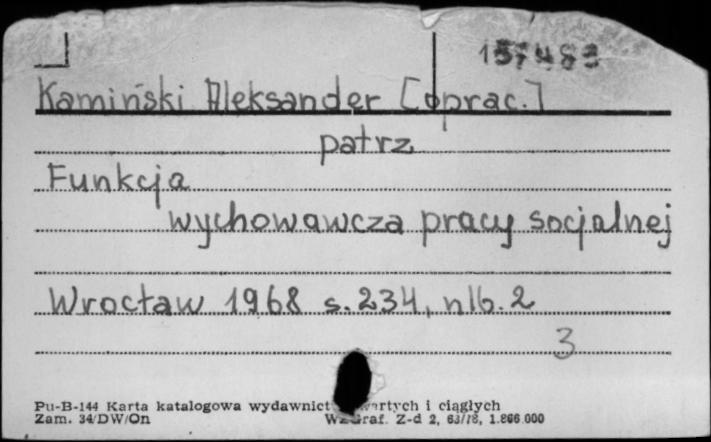 157483
Kamiński Aleksander [oprac.]
patrz
Funkcja
wychowawcza pracy socjalnej
Wrocław 1968 s. 234, nlb. 2
3
Pu-B-144 Karta katalogowa wydawnict i ciągłych
Zam. 34/DW/On Z-d 2, 63/78, 1.866.000